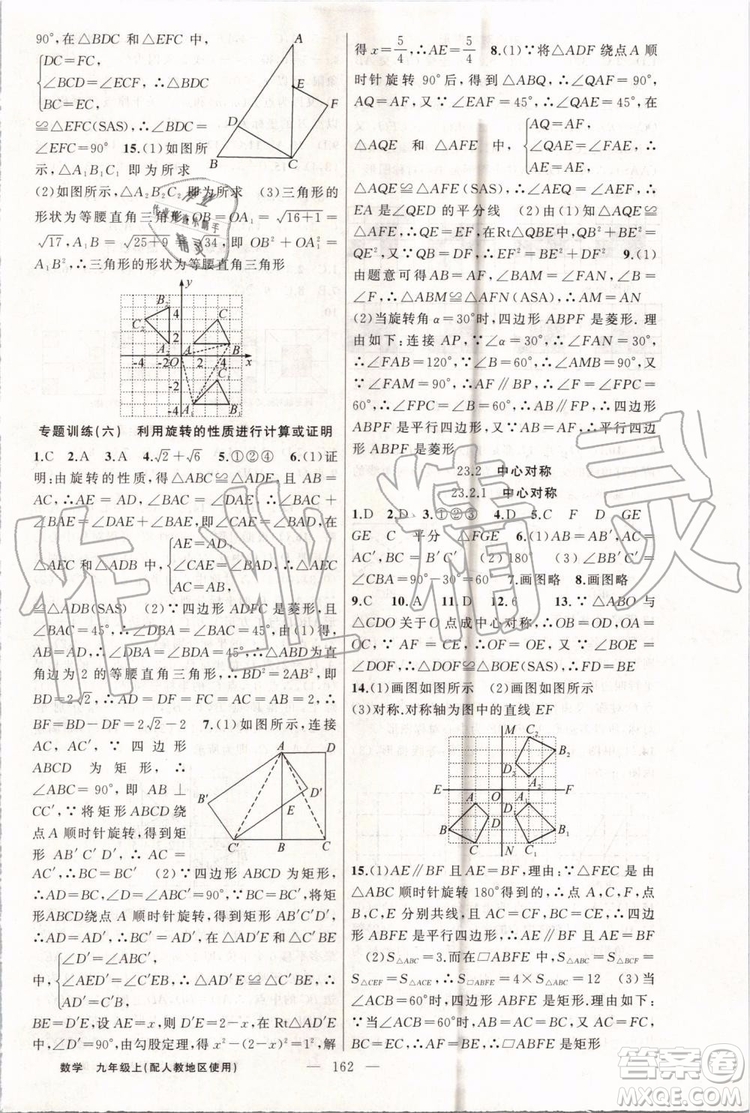 90°,在△BDC和△EFC中,
DC=FC,
∠BCD=∠ECF,∴△BDC
BC=EC,
≌△EFC(SAS),∴∠BDC=
∠EFC=90° 15.(1)如图所
示,△A₁B₁C₁即为所求
(2)如图所示,△A₂B₂C₂即为所求 (3)三角形的
形状为等腰直角三角形,OB=OA₁=√16+1=
√17,A₁B=√25+9=√34,即OB²+OA₁²=
A₁B²,∴三角形的形状为等腰直角三角形
专题训练(六) 利用旋转的性质进行计算或证明
1.C 2.A 3.A 4.√2+√6 5.①②④ 6.(1)证
明:由旋转的性质,得△ABC≌△ADE,且AB=
AC,∴AE=AD,AC=AB,∠BAC=∠DAE,∴∠BAC
+∠BAE=∠DAE+∠BAE,即∠CAE=∠BAD,在
△AEC和△ADB中,
AE=AD,
∠CAE=∠BAD,∴△AEC
AC=AB,
≌△ADB(SAS) (2)∵四边形ADFC是菱形,且
∠BAC=45°,∴∠DBA=∠BAC=45°,由(1)得
AB=AD,∴∠DBA=∠BDA=45°,∴△ABD为直
角边为2的等腰直角三角形,∴BD²=2AB²,即
BD=2√2,∴AD=DF=FC=AC=AB=2,∴BF=
BD-DF=2√2-2 7.(1)如图所示,连接
AC,AC′,∵四边形
ABCD为矩形,
∴∠ABC=90°,即AB⊥
CC′,∵将矩形ABCD
绕点A顺时针旋转,得到矩
形AB′C′D′,∴AC=
AC′,∴BC=BC′ (2)∵四边形ABCD为矩形,
∴AD=BC,∠D=∠ABC′=90°,∵BC=BC′,
∴BC′=AD′,∵将矩形
ABCD绕点A顺时针旋转,得到矩形AB′C′D′,
∴AD=AD′,∴BC′=AD′,在△AD′E与△C′BE
中,
∠D′=∠ABC′,
∠AED′=∠BEC′,∴△AD′E≌△C′BE,∴
AD′=BC′,
BE=D′E,设AE=x,则D′E=2-x,在Rt△AD′E
中,由勾股定理,得x²-(2-x)²=1,解
得x=5/4,∴AE=5/4 8.(1)∵将△ADF绕点A顺
时针旋转90°后,得到△ABQ,∴∠QAF=90°,
AQ=AF,又∵∠EAF=45°,∴∠QAE=45°,在
△AQE和△AFE中,
AQ=AF,
∠QAE=∠FAE=45°,
AE=AE,
∴△AQE≌△AFE(SAS),∴∠AEQ=∠AEF,∴
EA是∠QED的平分线 (2)由(1)知△AQE≌
△AFE,∴QE=EF,在Rt△QBE中,QB²+BE²=
QE²,又∵QB=DF,∴EF²=BE²+DF² 9.(1)
由题意可得,AB=AF,∠BAM=∠FAN,∠B=
∠F=60°,∴△ABM≌△AFN(ASA),∴AM=AN
(2)当旋转角α=30°时,四边形ABPF是菱形.理
由如下:连接AP,∵∠α=30°,∴∠FAN=30°,
∴∠FAB=120°,∵∠B=60°,∴∠AMB=90°,又
∵∠B=60°,∴AF∥BP,∴∠F=∠FPC=
60°,∴∠FPC=∠B=60°,∴AB∥FP,∴四边
形ABPF是平行四边形,又∵AB=AF,∴平行四边
形ABPF是菱形
23.2 中心对称
23.2.1 中心对称
1.D 2.D 3.①②③ 4.D 5.C F D GF
GE C 平分 △GFE 6.(1)AB=A′B′,AC=
A′C′,BC=B′C′ (2)180° (3)∠BB′C′=
∠CBA=90° 7.画图略 8.画图略
9.C 10.A 11.D 12.6 13.∵△ABO与
△CDO关于O点成中心对称,∴OB=OD,OA=
OC,∵AF=CE,∴OF=OE,又∵∠DOF=
∠BOE,∴△DOF≌△BOE(SAS),∴FD=BE
14.(1)画图如图所示 (2)画图如图所示
(3)对称.对称轴为图中的直线EF
15.(1)AE∥BF且AE=BF,理由:∵△FEC是由
△ABC顺时针旋转180°得到的,∴A,C,F和B,C,
E分别共线,且AC=FC,BC=EC,∴四边形
ABFE是平行四边形,∴AE∥BF且AE=BF
(2)S△FEC=S△ABC=3.而在▱ABFE中,S△ABC=S△BCF=
S△CEF=S△ACE,∴S▱ABFE=4×S△ABC=12 (3)当
∠ACB=60°时,四边形ABFE是矩形,理由:
∵AB=AC,∠ACB=60°,∴△ABC是等边三角形,
∴BC=AC,∴BE=AF,∴四边形ABFE是矩形
数学 九年级上(配人教地区使用)
— 162 —
作业精灵
答案圈
MXQE.COM